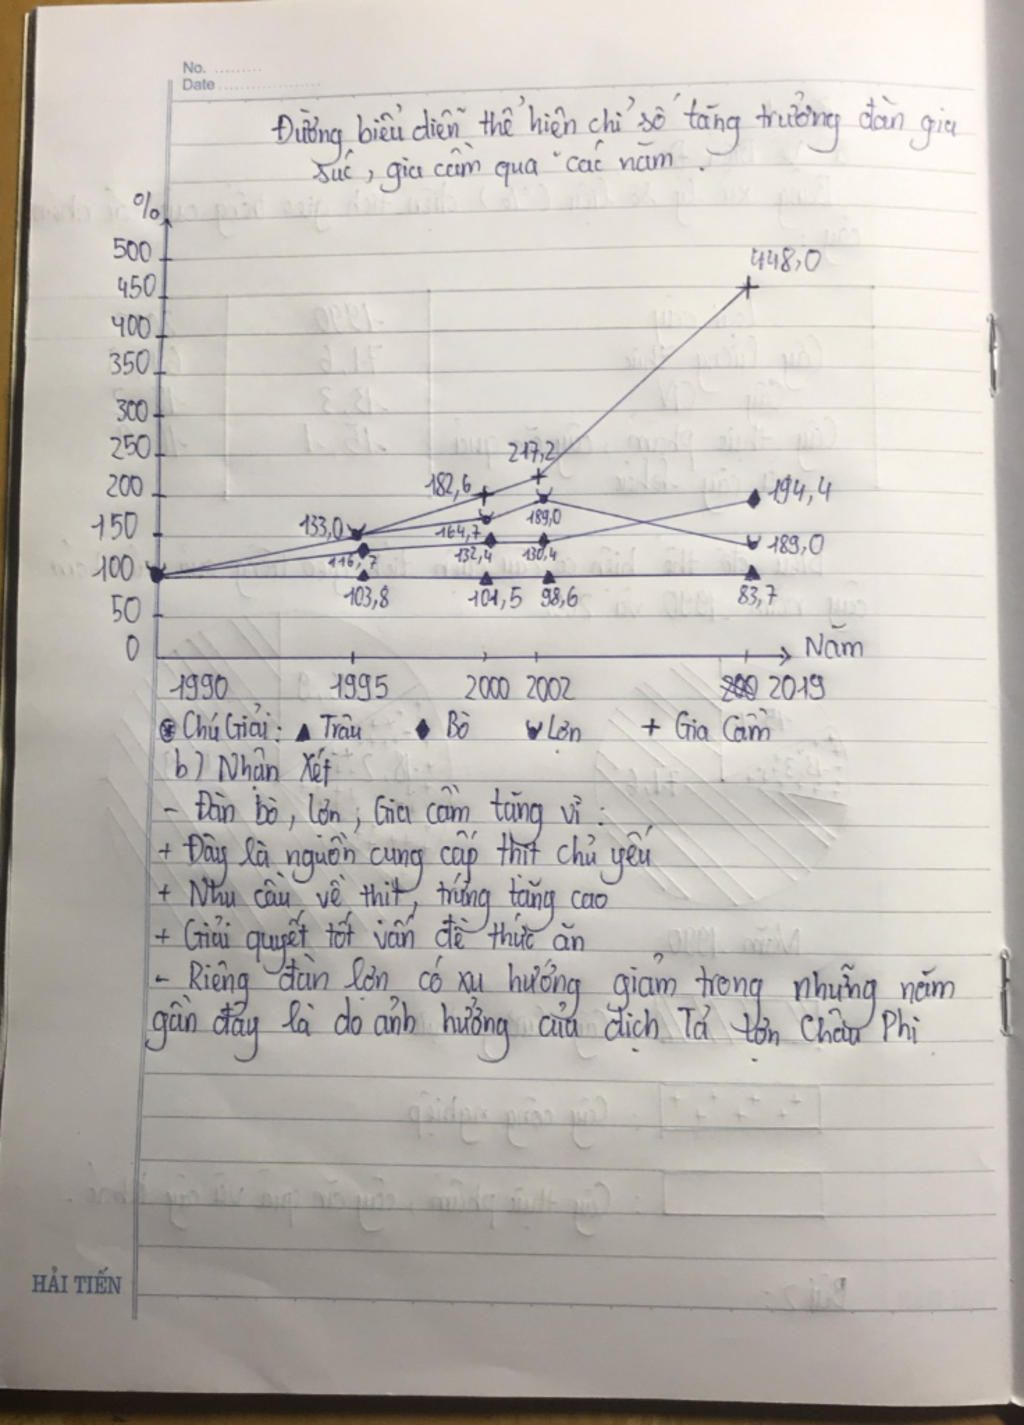 No. .........
Date ...................
Đường biểu diễn thể hiện chỉ số tăng trưởng đàn gia
súc, gia cầm qua các năm.
%
500
450
400
350
300
250
200
150
100
50
0
448,0
217,2
182,6
194,4
133,0
164,7
189,0
116,7
132,4
130,4
189,0
103,8
101,5
98,6
83,7
Năm
1990 1995 2000 2002 2019
Chú Giải: ▲ Trâu ◆ Bò Lợn + Gia Cầm
b) Nhận Xét
- Đàn bò, lợn, Gia cầm tăng vì:
+ Đây là nguồn cung cấp thịt chủ yếu
+ Nhu cầu về thịt, trứng tăng cao
+ Giải quyết tốt vấn đề thức ăn
- Riêng đàn lợn có xu hướng giảm trong những năm
gần đây là do ảnh hưởng của dịch Tả lợn Châu Phi
HẢI TIẾN